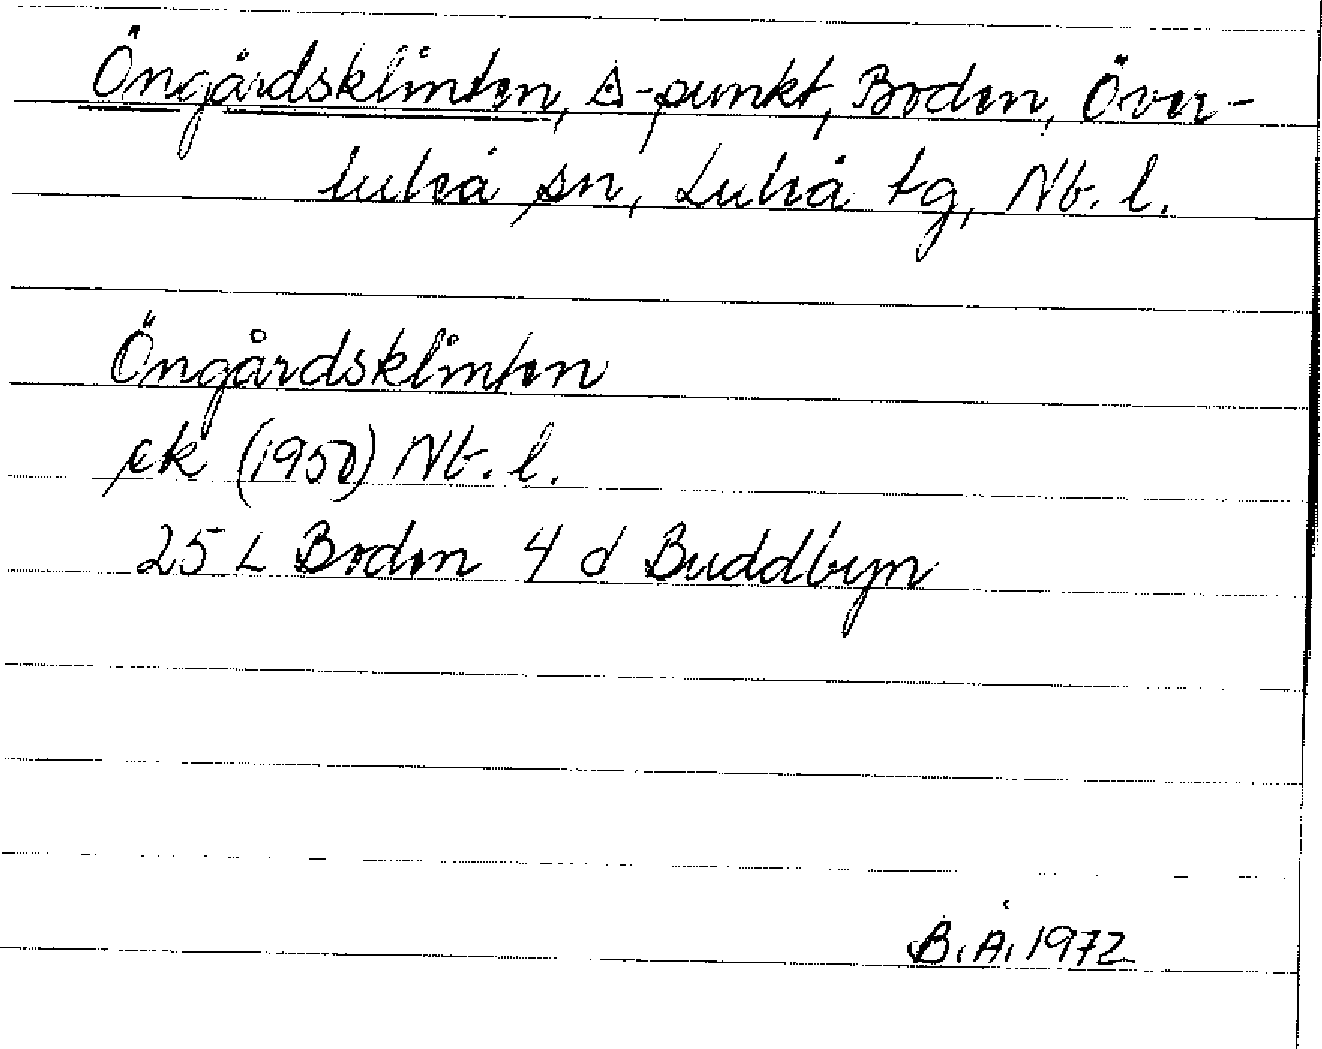 Öngårdsklinten, △-punkt, Boden, Över-
luleå sn, Luleå tg, Nb. l.
Öngårdsklinten
ek (1950) Nb. l.
25 L Boden 4 d Buddbyn
B.Å. 1972